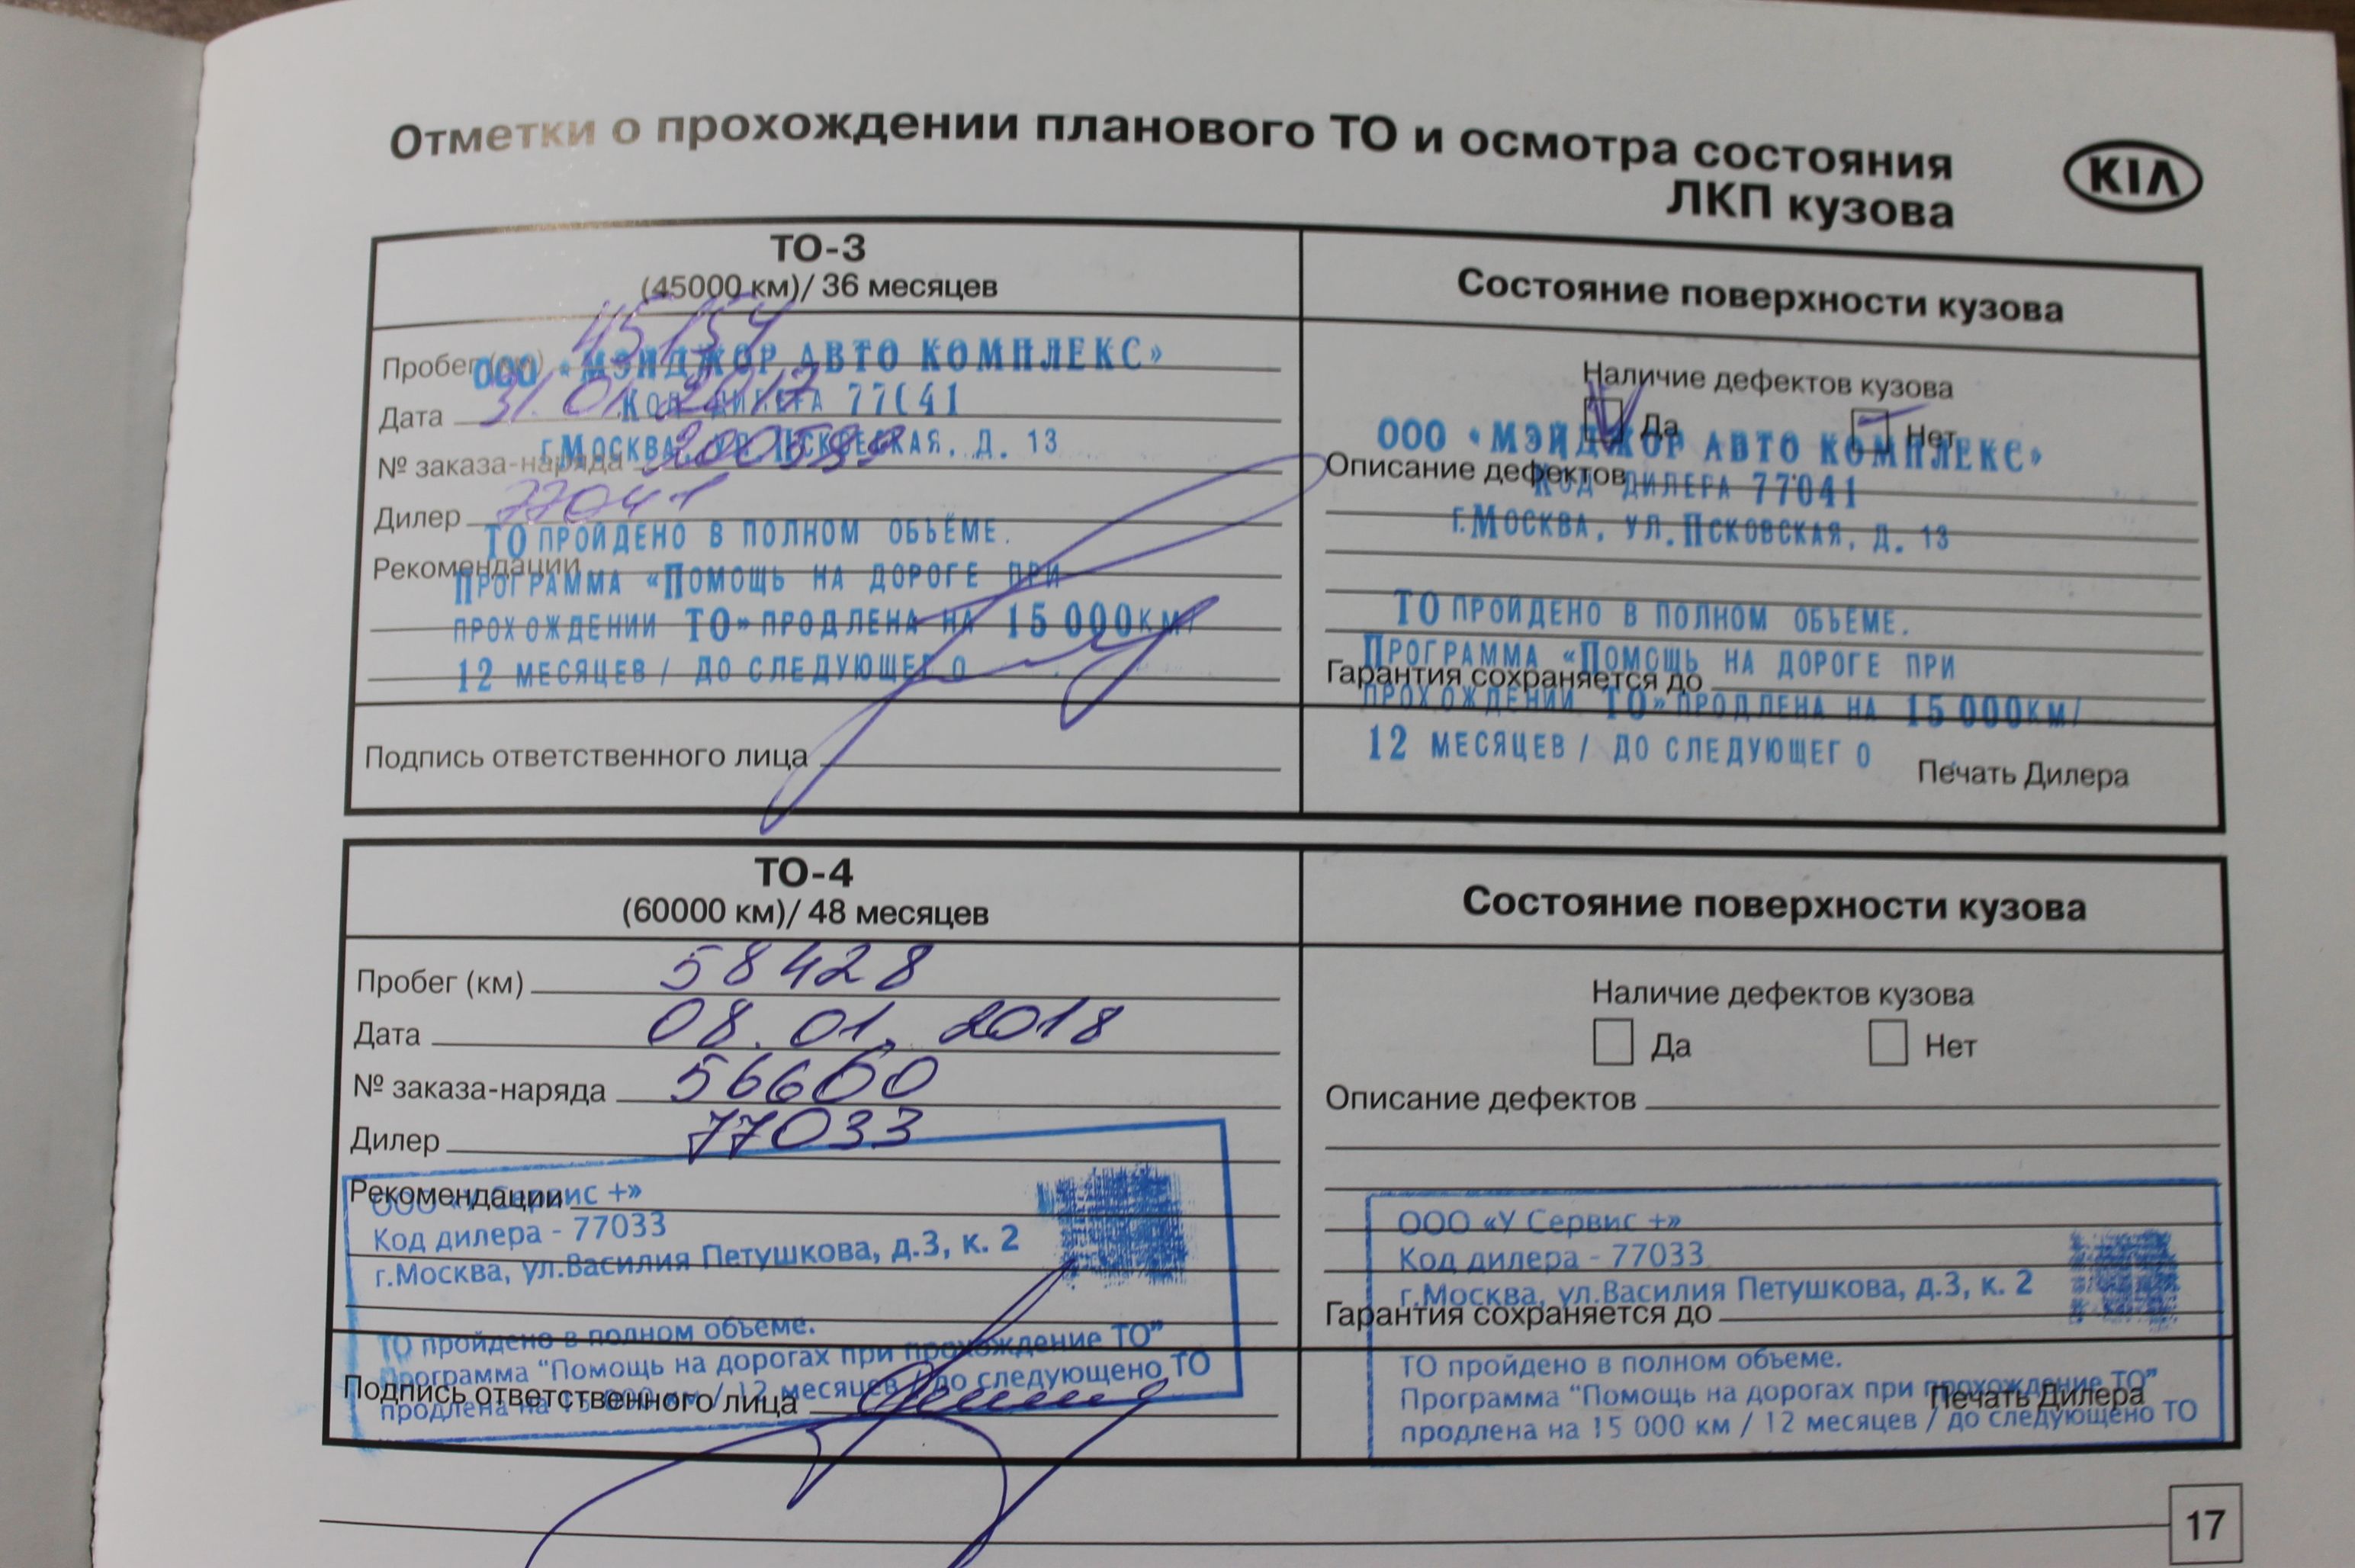 Отметки о прохождении планового ТО и осмотра состояния
ЛКП кузова
KIA
ТО-3
(45000 км)/ 36 месяцев
Пробег (км) 45154
Дата 31.01.2017
№ заказа-наряда
Дилер 77041
Рекомендации
ООО «МЭЙДЖОР АВТО КОМПЛЕКС»
КОД ДИЛЕРА 77041
Г.МОСКВА, УЛ.ПСКОВСКАЯ, Д. 13
ТО ПРОЙДЕНО В ПОЛНОМ ОБЪЁМЕ.
ПРОГРАММА «ПОМОЩЬ НА ДОРОГЕ ПРИ
ПРОХОЖДЕНИИ ТО» ПРОДЛЕНА НА 15 000КМ/
12 МЕСЯЦЕВ / ДО СЛЕДУЮЩЕГО
Подпись ответственного лица
Состояние поверхности кузова
Наличие дефектов кузова
Да Нет
Описание дефектов
ООО «МЭЙДЖОР АВТО КОМПЛЕКС»
КОД ДИЛЕРА 77041
Г.МОСКВА, УЛ.ПСКОВСКАЯ, Д. 13
ТО ПРОЙДЕНО В ПОЛНОМ ОБЪЕМЕ.
ПРОГРАММА «ПОМОЩЬ НА ДОРОГЕ ПРИ
Гарантия сохраняется до
ПРОХОЖДЕНИИ ТО» ПРОДЛЕНА НА 15 000КМ/
12 МЕСЯЦЕВ / ДО СЛЕДУЮЩЕГО
Печать Дилера
ТО-4
(60000 км)/ 48 месяцев
Пробег (км) 58428
Дата 08.01.2018
№ заказа-наряда 56660
Дилер 77033
Рекомендации
ООО «У Сервис +»
Код дилера - 77033
г.Москва, ул.Василия Петушкова, д.3, к. 2
ТО пройдено в полном объеме.
Программа "Помощь на дорогах при прохождение ТО"
продлена на 15 000 км / 12 месяцев / до следующено ТО
Подпись ответственного лица
Состояние поверхности кузова
Наличие дефектов кузова
Да Нет
Описание дефектов
ООО «У Сервис +»
Код дилера - 77033
г.Москва, ул.Василия Петушкова, д.3, к. 2
Гарантия сохраняется до
ТО пройдено в полном объеме.
Программа "Помощь на дорогах при прохождение ТО"
продлена на 15 000 км / 12 месяцев / до следующено ТО
Печать Дилера
17